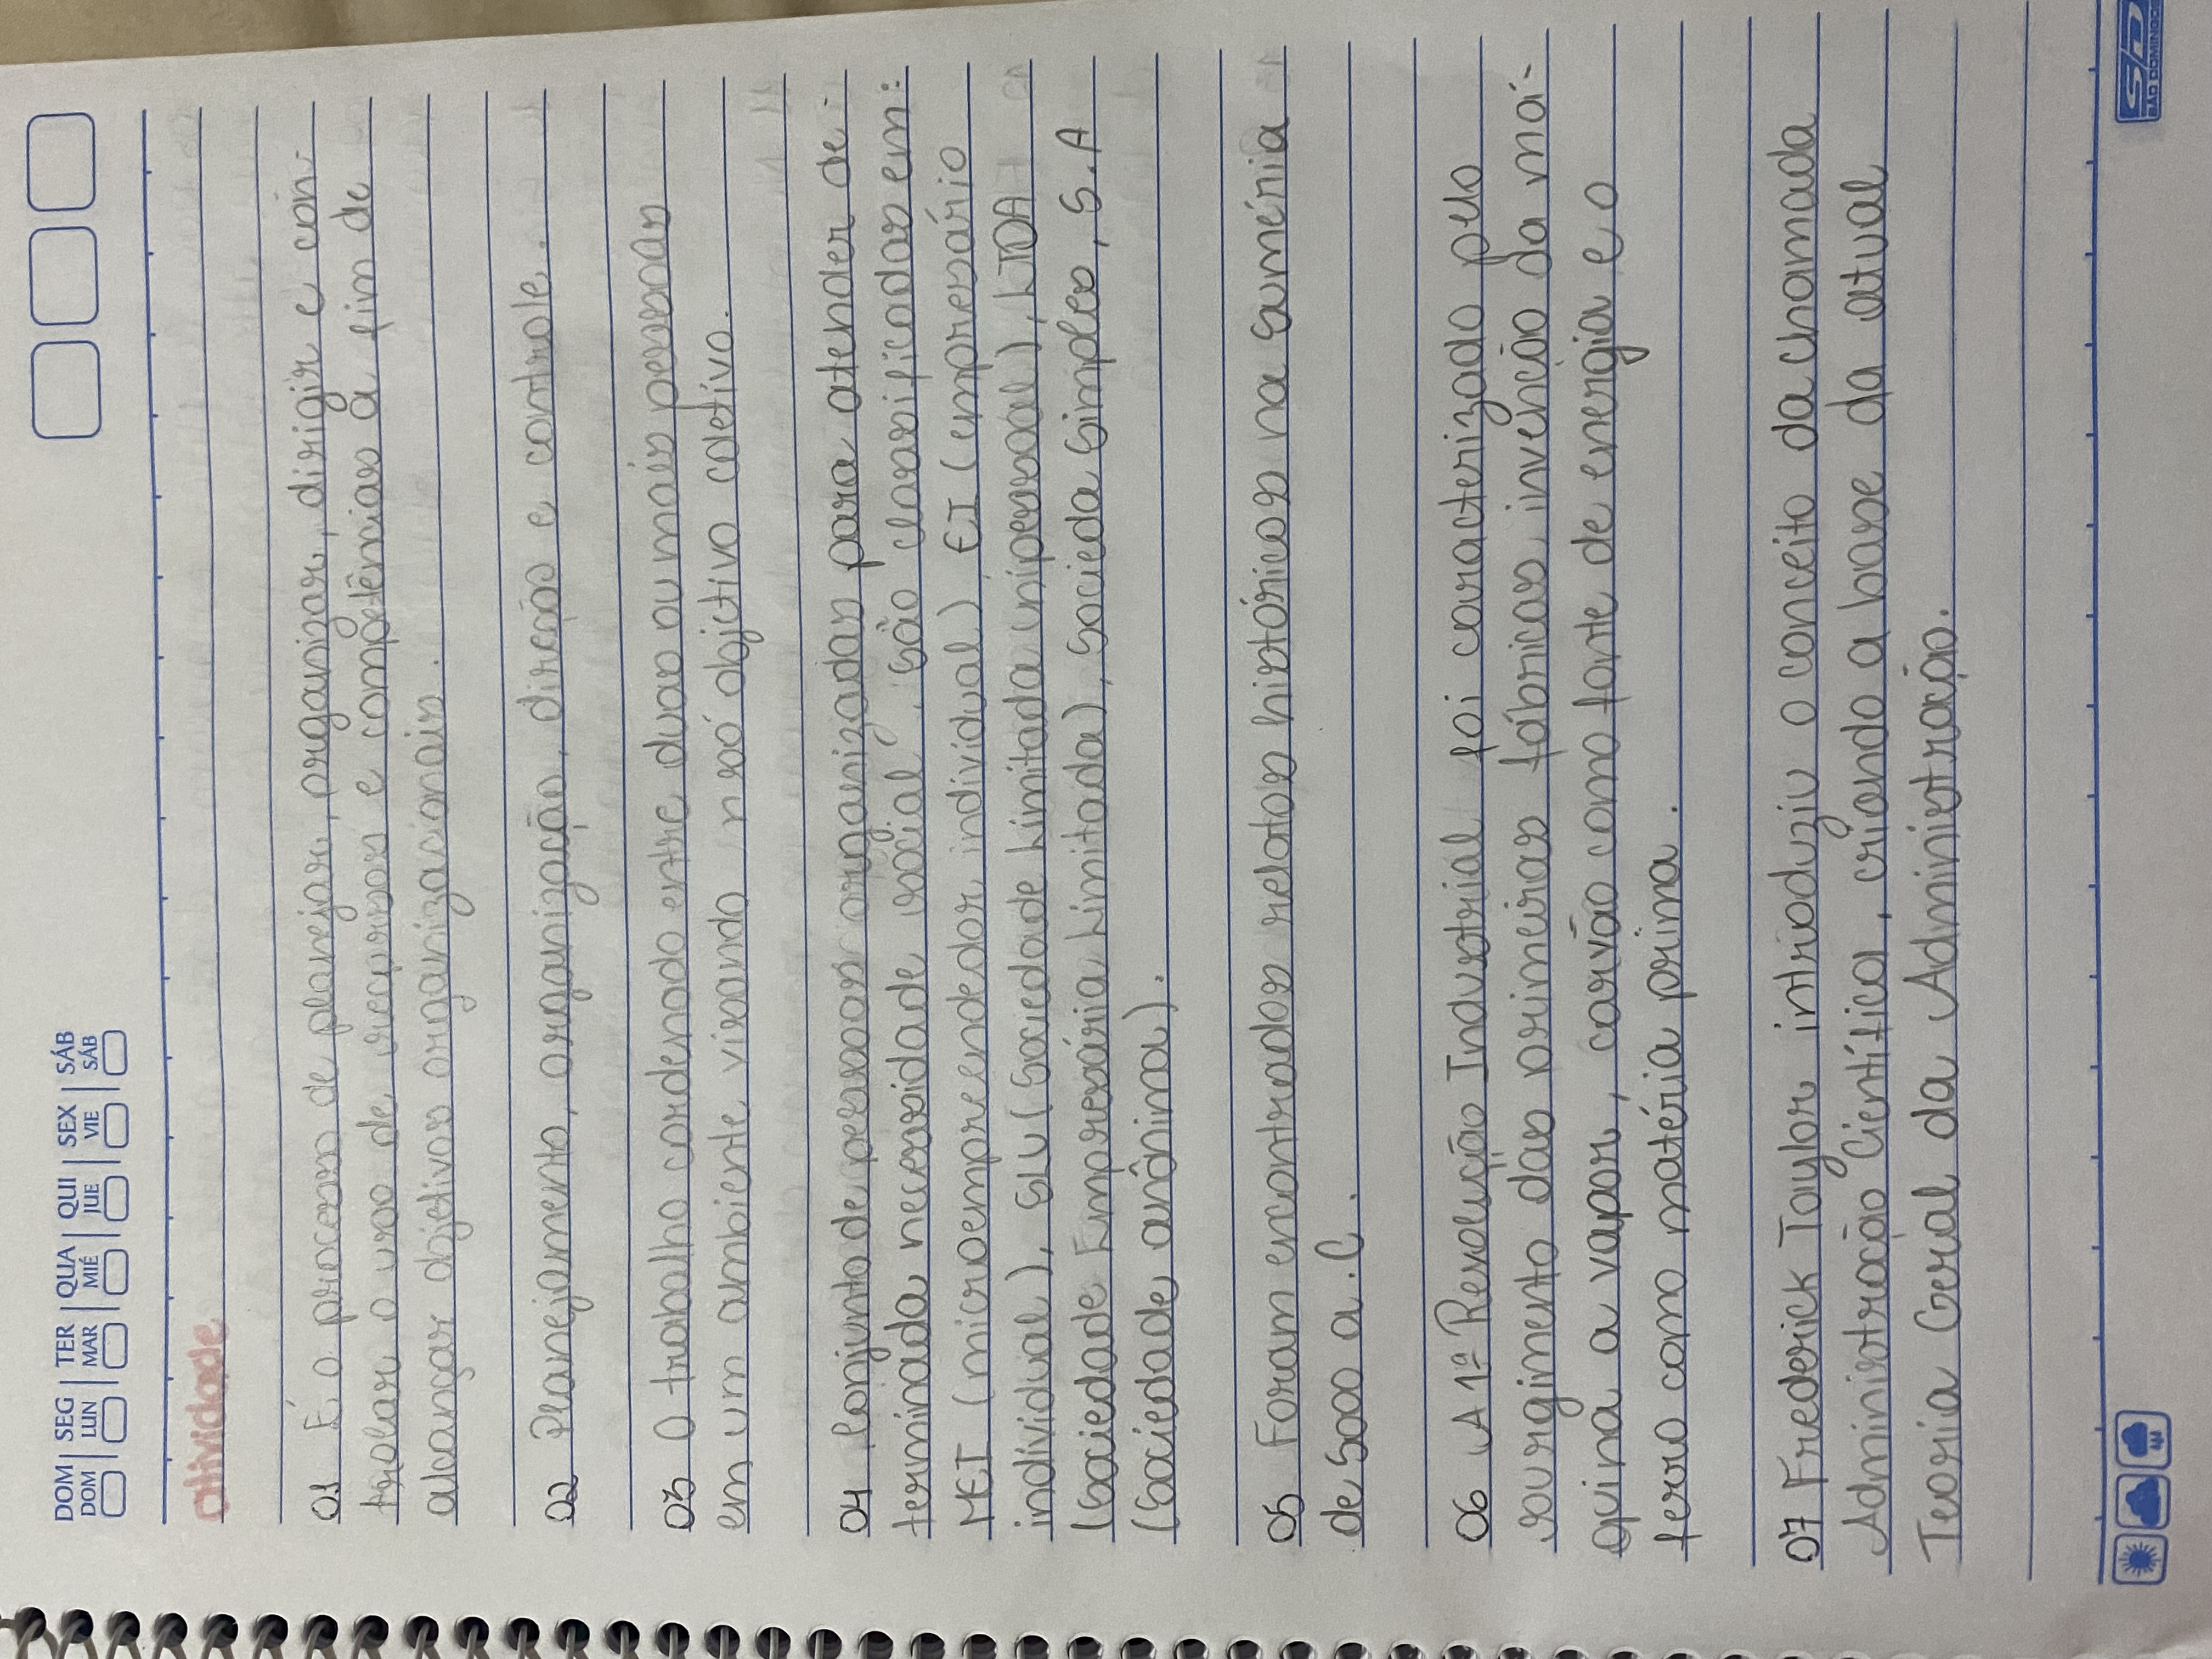 DOM SEG TER QUA QUI SEX SÁB
DOM LUN MAR MIÉ JUE VIE SÁB
atividade
01 É o processo de planejar, organizar, dirigir e con-
trolar o uso de recursos e competências a fim de
alcançar objetivos organizacionais.
02 Planejamento, organização, direção e controle.
03 O trabalho cordenado entre duas ou mais pessoas
em um ambiente visando só objetivo coletivo.
04 Conjunto de pessoas organizadas para atender de-
terminada necessidade social. São classificadas em:
MEI (microempreendedor individual), EI (empresário
individual), SLU (Sociedade Limitada Unipessoal), LTDA
(Sociedade Empresária Limitada), Socieda Simples, S.A
(Sociedade anônima).
05 Foram encontrados relatos históricos na Suméria
de 5000 a.C.
06 A 1ª Revolução Industrial foi caracterizado pelo
surgimento das primeiras fábricas, invenção da má-
quina a vapor, carvão como fonte de energia e o
ferro como matéria prima.
07 Frederick Taylor introduziu o conceito da chamada
Administração Científica, criando a base da atual
Teoria Geral da Administração.
SD
SÃO DOMINGOS